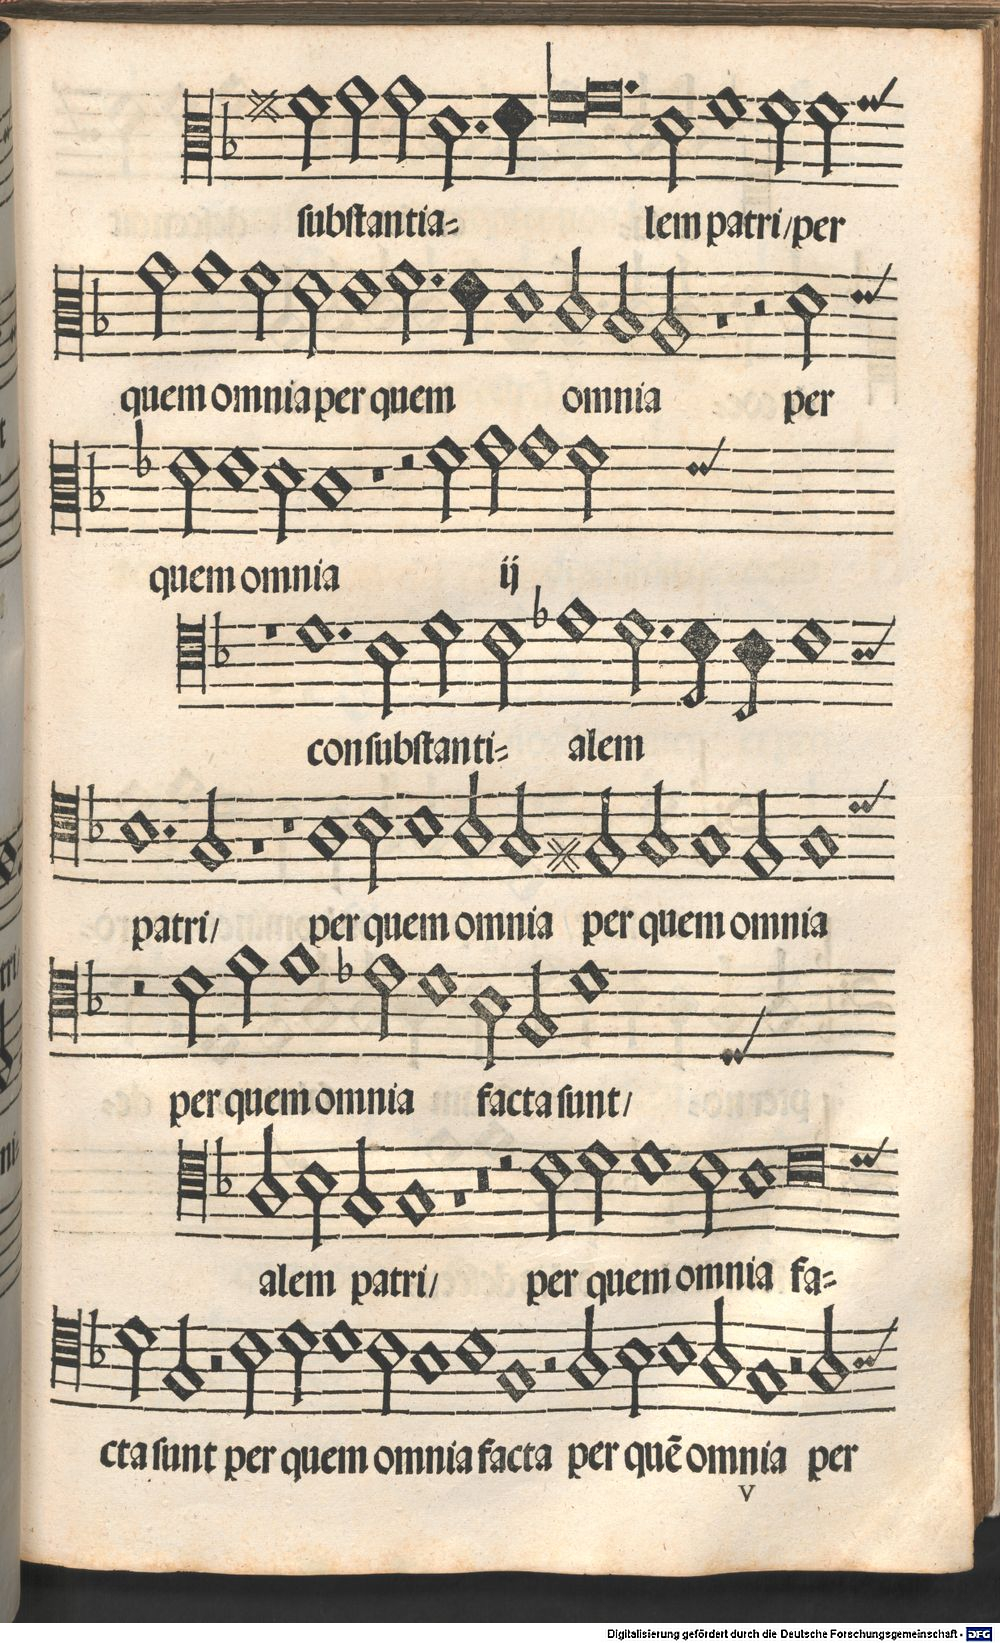 substantia= lem patri/per
quem omnia per quem omnia per
quem omnia ij
consubstanti= alem
patri/ per quem omnia per quem omnia
per quem omnia facta sunt/
alem patri/ per quem omnia fa=
cta sunt per quem omnia facta per quē omnia per
v
Digitalisierung gefördert durch die Deutsche Forschungsgemeinschaft - DFG